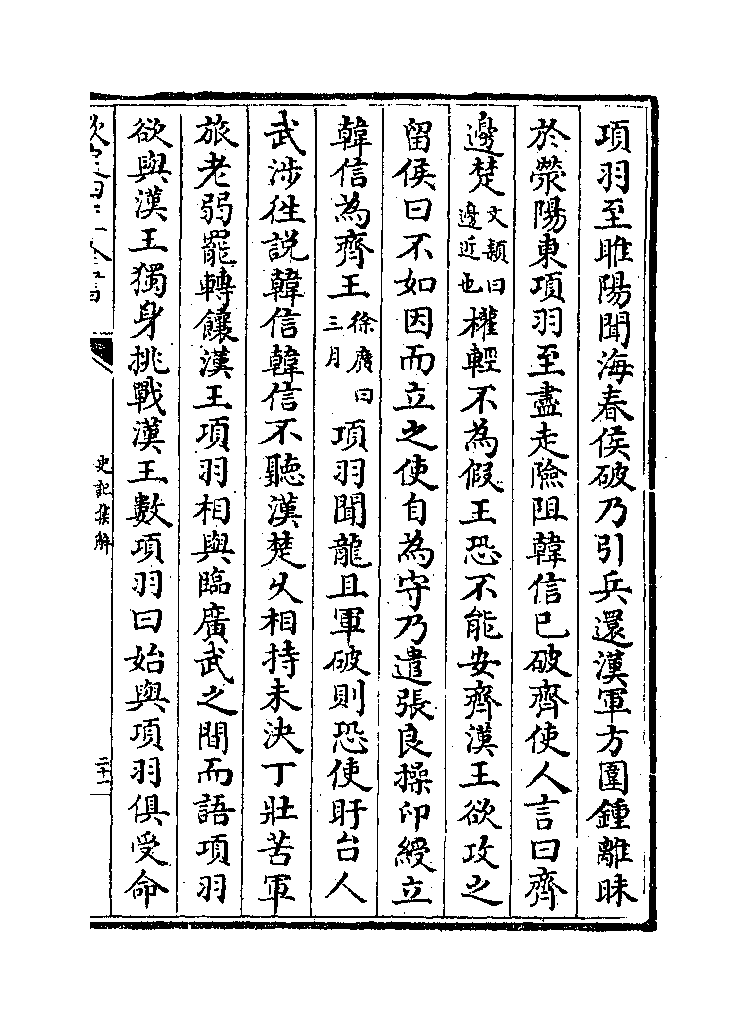 項羽至睢陽聞海春侯破乃引兵還漢軍方圍鍾離昧
於滎陽東項羽至盡走險阻韓信已破齊使人言曰齊
邊楚文頴曰邊近也權輕不為假王恐不能安齊漢王欲攻之
留侯曰不如因而立之使自為守乃遣張良操印綬立
韓信為齊王徐廣曰三月項羽聞龍且軍破則恐使盱台人
武涉徃說韓信韓信不聽漢楚乆相持未決丁壯苦軍
旅老弱罷轉饟漢王項羽相與臨廣武之間而語項羽
欲與漢王獨身挑戰漢王數項羽曰始與項羽俱受命
欽定四庫全書
史記集解
二十一